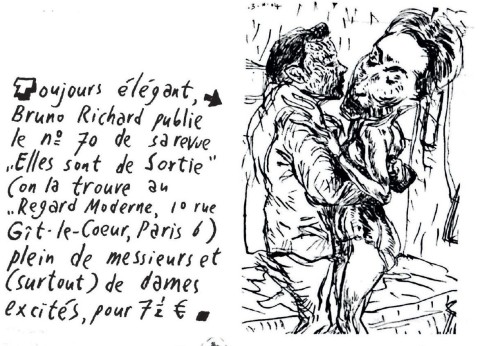 Toujours élégant,
Bruno Richard publie
le nº 70 de sa revue
„Elles sont de Sortie"
(on la trouve au
„Regard Moderne, 10 rue
Gît-le-Coeur, Paris 6)
plein de messieurs et
(surtout) de dames
excités, pour 7½ €.